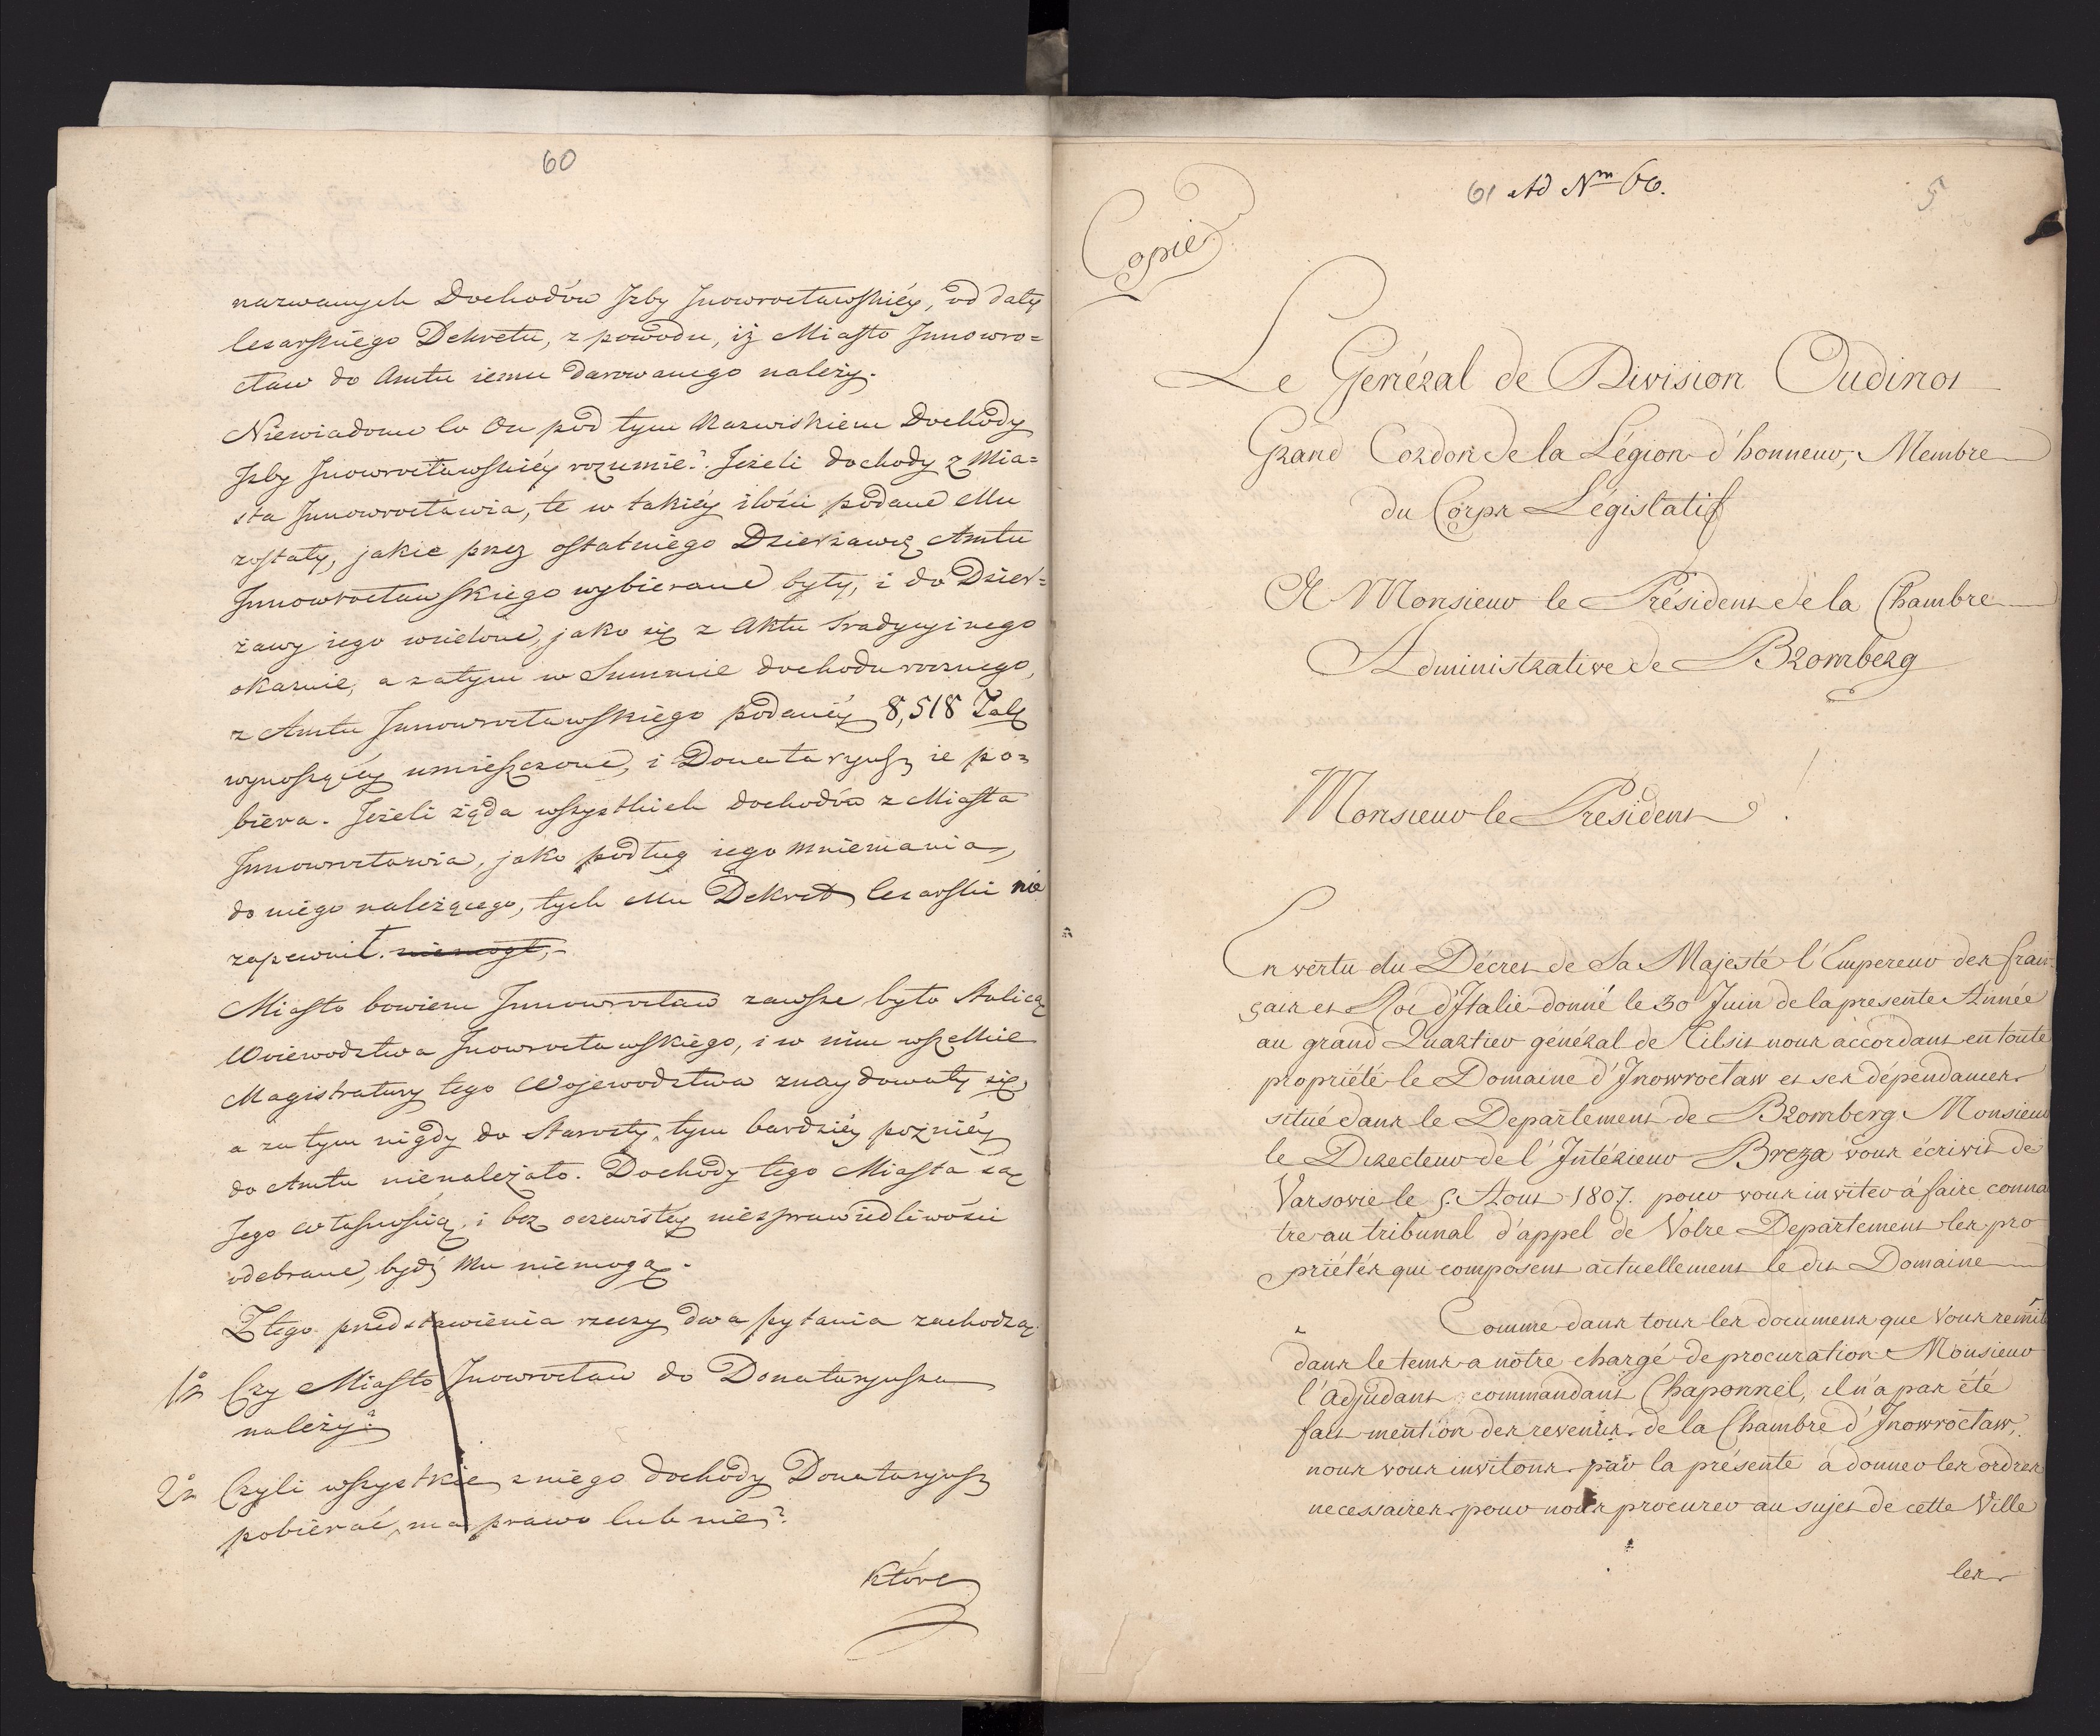 60
nazwanych Dochodów Izby Inowrocławskiéy, od daty
Cesarskiego Dekretu, z powodu, iż Miasto Innowro=
cław do Amtu iemu darowanego należy.
Niewiadomo co On pod tym Nazwiskiem Dochody
Izby Inowrocławskiéy rozumie? Jeżeli dochody z Mia=
sta Innowrocławia, te w takiéy ilości podane Mu
zostały, jakie przez ostatniego Dzierżawcę Amtu
Innowrocławskiego wybierane były, i do Dzier=
żawy iego wcielone, jako się z Aktu Tradycyinego
okazuie, a zatym w Summie dochodu rocznego,
z Amtu Innowrocławskiego podanéy 8,518 Tal
wynoszącéy umieszczone, i Donataryusz ie po=
biera. Jeżeli żąda wszystkich dochodów z Miasta
Innowrocławia, jako podług iego mniemania,
do niego należącego, tych Mu Dekret Cesarski nie
zapewnił. niemógł,
Miasto bowiem Innowrocław zawsze było Stolicą
Woiewodztwa Inowrocławskiego, i w nim wszelkie
Magistratury tego Wojewodztwa znaydowały się,
a zatym nigdy do Starosty, tym bardziéy pozniéy
do Amtu nienależało. Dochody tego Miasta są
Jego własnością, i bez oczewistéy niesprawiedliwości
odebrane, bydź Mu niemogą.
Z tego przedstawienia rzeczy dwa pytania zachodzą
1o Czy Miasto Inowrocław do Donataryusza
należy?
2o Czyli wszystkie z niego dochody Donataryusz
pobierać, ma prawo lub nie?
które
61 Ad Nm 66.
5
Copie
Le Général de Division Oudinot
Grand Cordon de la Légion d'honneur, Membre
du Corps Législatif
A Monsieur le Président de la Chambre
Administrative de Bromberg
Monsieur le President!
En vertu du Décret de Sa Majesté l'Empereur des fran-
çais et Roi d'Italie donné le 30 Juin de la presente Année
au grand Quartier général de Tilsit nous accordant en toute
propriété le Domaine d'Inowrocław et ses dépendances
situé dans le Departement de Bromberg Monsieur
le Directeur de l'Intérieur Breza vous écrivit de
Varsovie le 5. Aout 1807. pour vous inviter à faire connai
tre au tribunal d'appel de Votre Departement les pro
priétés qui composent actuellement le dit Domaine
Comme dans tous les documens que Vous remit
dans le tems a nôtre chargé de procuration Monsieur
l'Adjudant commandant Chaponnel, il n'a pas été
fait mention des revenus de la Chambre d'Inowrocław,
nous vous invitons par la présente à donner les ordres
necessaires pour nous procurer au sujet de cette Ville
les